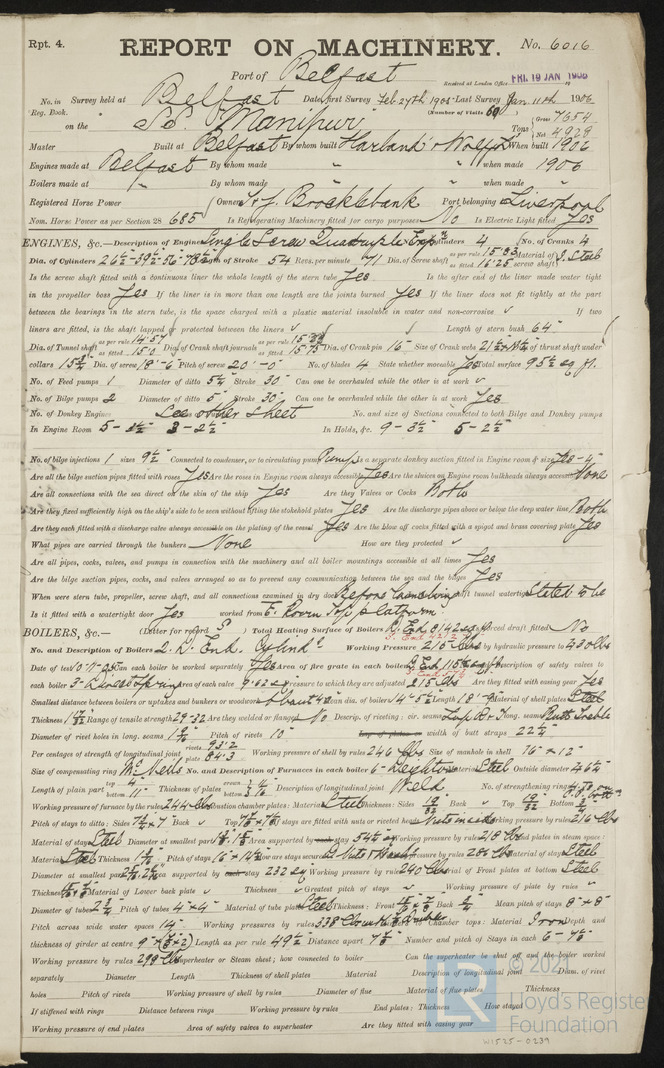 Rpt. 4.
REPORT ON MACHINERY. No. 6016
Port of Belfast
Received at London Office FRI. 19 JAN 1906
No. in Survey held at Belfast Date, first Survey Feb 27th 1905 Last Survey Jan. 11th 1906
Reg. Book. (Number of Visits 69)
on the SS. Manipur Tons { Gross 7654 Net 4929
Master Built at Belfast By whom built Harland & Wolff When built 1906
Engines made at Belfast By whom made " when made 1906
Boilers made at " By whom made " when made "
Registered Horse Power Owners T. & J. Brocklebank Port belonging Liverpool
Nom. Horse Power as per Section 28 685 Is Refrigerating Machinery fitted for cargo purposes No Is Electric Light fitted Yes
ENGINES, &c.—Description of Engines Single Screw Quadruple Expn No. of Cylinders 4 No. of Cranks 4
Dia. of Cylinders Length of Stroke 54 Revs. per minute 71 Dia. of Screw shaft as per rule 15.83 as fitted 16.25 Material of screw shaft I. Steel
Is the screw shaft fitted with a continuous liner the whole length of the stern tube Yes Is the after end of the liner made water tight
in the propeller boss Yes If the liner is in more than one length are the joints burned Yes If the liner does not fit tightly at the part
between the bearings in the stern tube, is the space charged with a plastic material insoluble in water and non-corrosive If two
liners are fitted, is the shaft lapped or protected between the liners Length of stern bush 64"
Dia. of Tunnel shaft as per rule 14.57 as fitted 15.0 Dia. of Crank shaft journals as per rule as fitted 15.75 Dia. of Crank pin 16" Size of Crank webs Dia. of thrust shaft under
collars 15 3/4 Dia. of screw 18'-6" Pitch of screw 20'-0" No. of blades 4 State whether moveable Yes Total surface 95 1/2 sq. ft.
No. of Feed pumps 1 Diameter of ditto 5 1/2 Stroke 30" Can one be overhauled while the other is at work
No. of Bilge pumps 2 Diameter of ditto 5" Stroke 30" Can one be overhauled while the other is at work Yes
No. of Donkey Engines See other sheet No. and size of Suctions connected to both Bilge and Donkey pumps
In Engine Room 5 - 3 1/2 3 - 2 1/2 In Holds, &c. 9 - 3 1/2 5 - 2 1/2
No. of bilge injections 1 sizes 9 1/2 Connected to condenser, or to circulating pump Pump Is a separate donkey suction fitted in Engine room & size Yes - 4"
Are all the bilge suction pipes fitted with roses Yes Are the roses in Engine room always accessible Yes Are the sluices on Engine room bulkheads always accessible None
Are all connections with the sea direct on the skin of the ship Yes Are they Valves or Cocks Both
Are they fixed sufficiently high on the ship's side to be seen without lifting the stokehold plates Yes Are the discharge pipes above or below the deep water line Both
Are they each fitted with a discharge valve always accessible on the plating of the vessel Yes Are the blow off cocks fitted with a spigot and brass covering plate Yes
What pipes are carried through the bunkers None How are they protected
Are all pipes, cocks, valves, and pumps in connection with the machinery and all boiler mountings accessible at all times Yes
Are the bilge suction pipes, cocks, and valves arranged so as to prevent any communication between the sea and the bilges Yes
When were stern tube, propeller, screw shaft, and all connections examined in dry dock Before Launching Is the screw shaft tunnel watertight Stated to be
Is it fitted with a watertight door Yes worked from E. Room Top platform
BOILERS, &c.— (Letter for record S) Total Heating Surface of Boilers Is forced draft fitted No
No. and Description of Boilers 2. D. End. Cylindl Working Pressure 215 lbs Tested by hydraulic pressure to 430 lbs
Date of test Can each boiler be worked separately Yes Area of fire grate in each boiler No. and Description of safety valves to
each boiler 3- Direct Spring Area of each valve 9.62 sq Pressure to which they are adjusted 215 lbs Are they fitted with easing gear Yes
Smallest distance between boilers or uptakes and bunkers or woodwork Mean dia. of boilers 14'-5 1/2 Length 18'-9 Material of shell plates Steel
Thickness Range of tensile strength 29-32 Are they welded or flanged No Descrip. of riveting: cir. seams Lap long. seams Butt Treble
Diameter of rivet holes in long. seams Pitch of rivets 10" Lap of plates or width of butt straps 22 1/4
Per centages of strength of longitudinal joint rivets 93.2 plate 84.3 Working pressure of shell by rules 246 lbs Size of manhole in shell 16" x 12"
Size of compensating ring McNeils No. and Description of Furnaces in each boiler 6 - Deighton Material Steel Outside diameter
Length of plain part top bottom Thickness of plates crown bottom Description of longitudinal joint Weld No. of strengthening rings
Working pressure of furnace by the rules 244 lbs Combustion chamber plates: Material Steel Thickness: Sides Back Top Bottom
Pitch of stays to ditto: Sides Back Top If stays are fitted with nuts or riveted heads Nuts Working pressure by rules 216 lbs
Material of stays Steel Diameter at smallest part Area supported by each stay Working pressure by rules 218 lbs End plates in steam space:
Material Steel Thickness Pitch of stays How are stays secured Working pressure by rules Material of stays Steel
Diameter at smallest part Area supported by each stay 232 sq Working pressure by rules 240 lbs Material of Front plates at bottom Steel
Thickness Material of Lower back plate Thickness Greatest pitch of stays Working pressure of plate by rules
Diameter of tubes 2 3/4 Pitch of tubes 4" x 4" Material of tube plates Steel Thickness: Front Back Mean pitch of stays 8" x 8"
Pitch across wide water spaces 14" Working pressures by rules Girders to Chamber tops: Material Iron Depth and
thickness of girder at centre Length as per rule Distance apart Number and pitch of Stays in each
Working pressure by rules 299 lbs Superheater or Steam chest; how connected to boiler Can the superheater be shut off and the boiler worked
separately Diameter Length Thickness of shell plates Material Description of longitudinal joint Diam. of rivet
holes Pitch of rivets Working pressure of shell by rules Diameter of flue Material of flue plates Thickness
If stiffened with rings Distance between rings Working pressure by rules End plates: Thickness How stayed
Working pressure of end plates Area of safety valves to superheater Are they fitted with easing gear
© 2021
Lloyd's Register
Foundation
W1525-0239